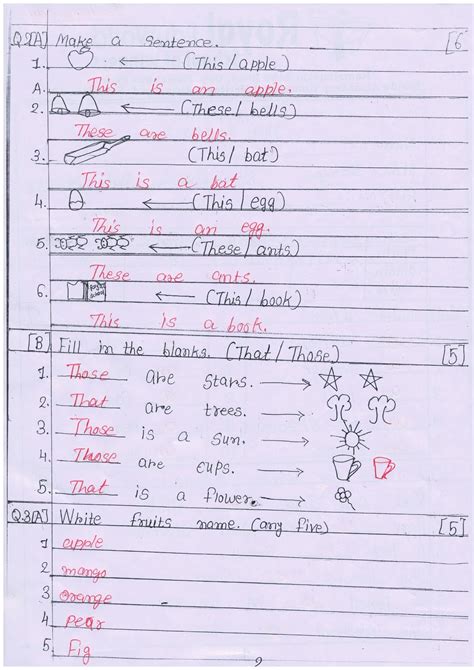 Q.2[A] Make a Sentence. [6
1. ← (This / apple)
A. This is an apple.
2. ← (These / bells)
These are bells.
3. (This / bat)
This is a bat
4. ← (This / egg)
This is an egg.
5. ← (These / ants)
These are ants.
6. ← (This / book)
This is a book.
[B] Fill in the blanks. (That / Those) [5]
1. Those are stars. →
2. That are trees. →
3. Those is a sun. →
4. Those are cups. →
5. That is a flower. →
Q.3[A] Write fruits name. (any five) [5]
1 apple
2 mango
3 orange
4 pear
5. Fig